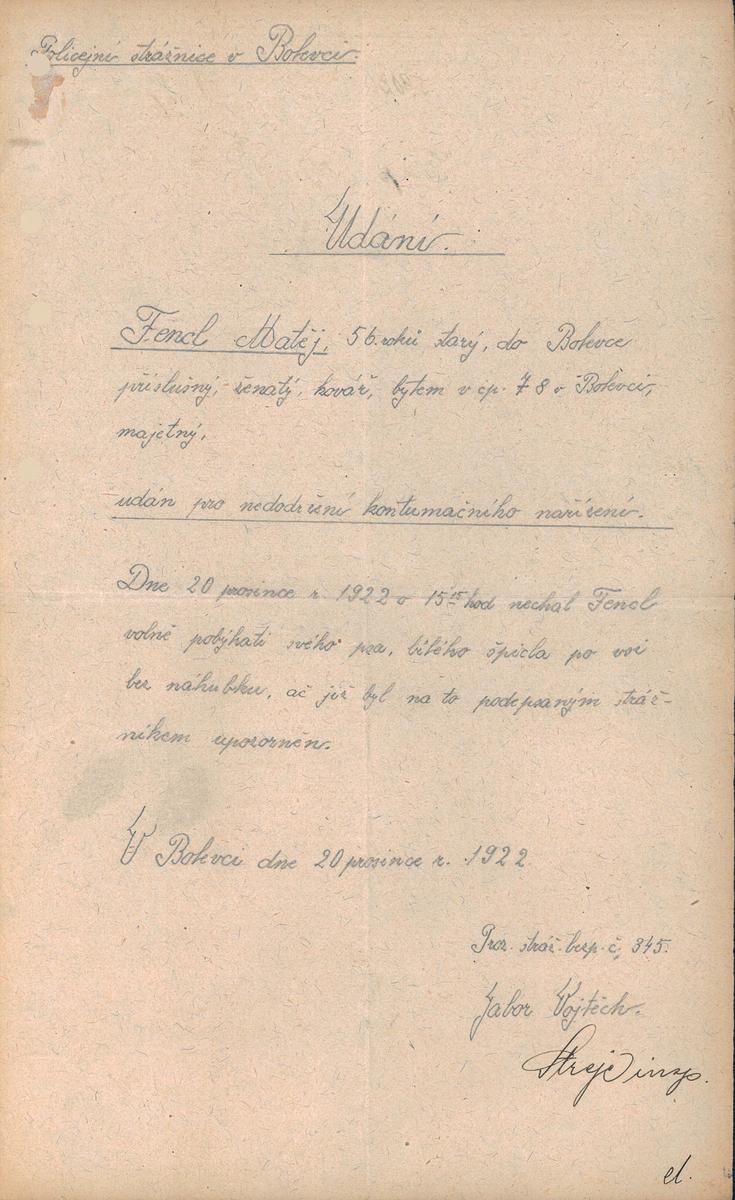 Policejní strážnice v Bolevci.
Udání.
Fencl Matěj, 56 roků starý, do Bolevce
příslušný, ženatý, kovář, bytem v čp. 78 v Bolevci,
majetný,
udán pro nedodržení kontumačního nařízení.
Dne 20 prosince r. 1922 o 15 15 hod nechal Fencl
volně pobýhati svého psa, bílého špicla po vsi
bez náhubku, ač již byl na to podepsaným stráž-
níkem upozorněn.
V Bolevci dne 20 prosince r. 1922
stráž. bezp. č. 345.
Vojtěch.
insp.